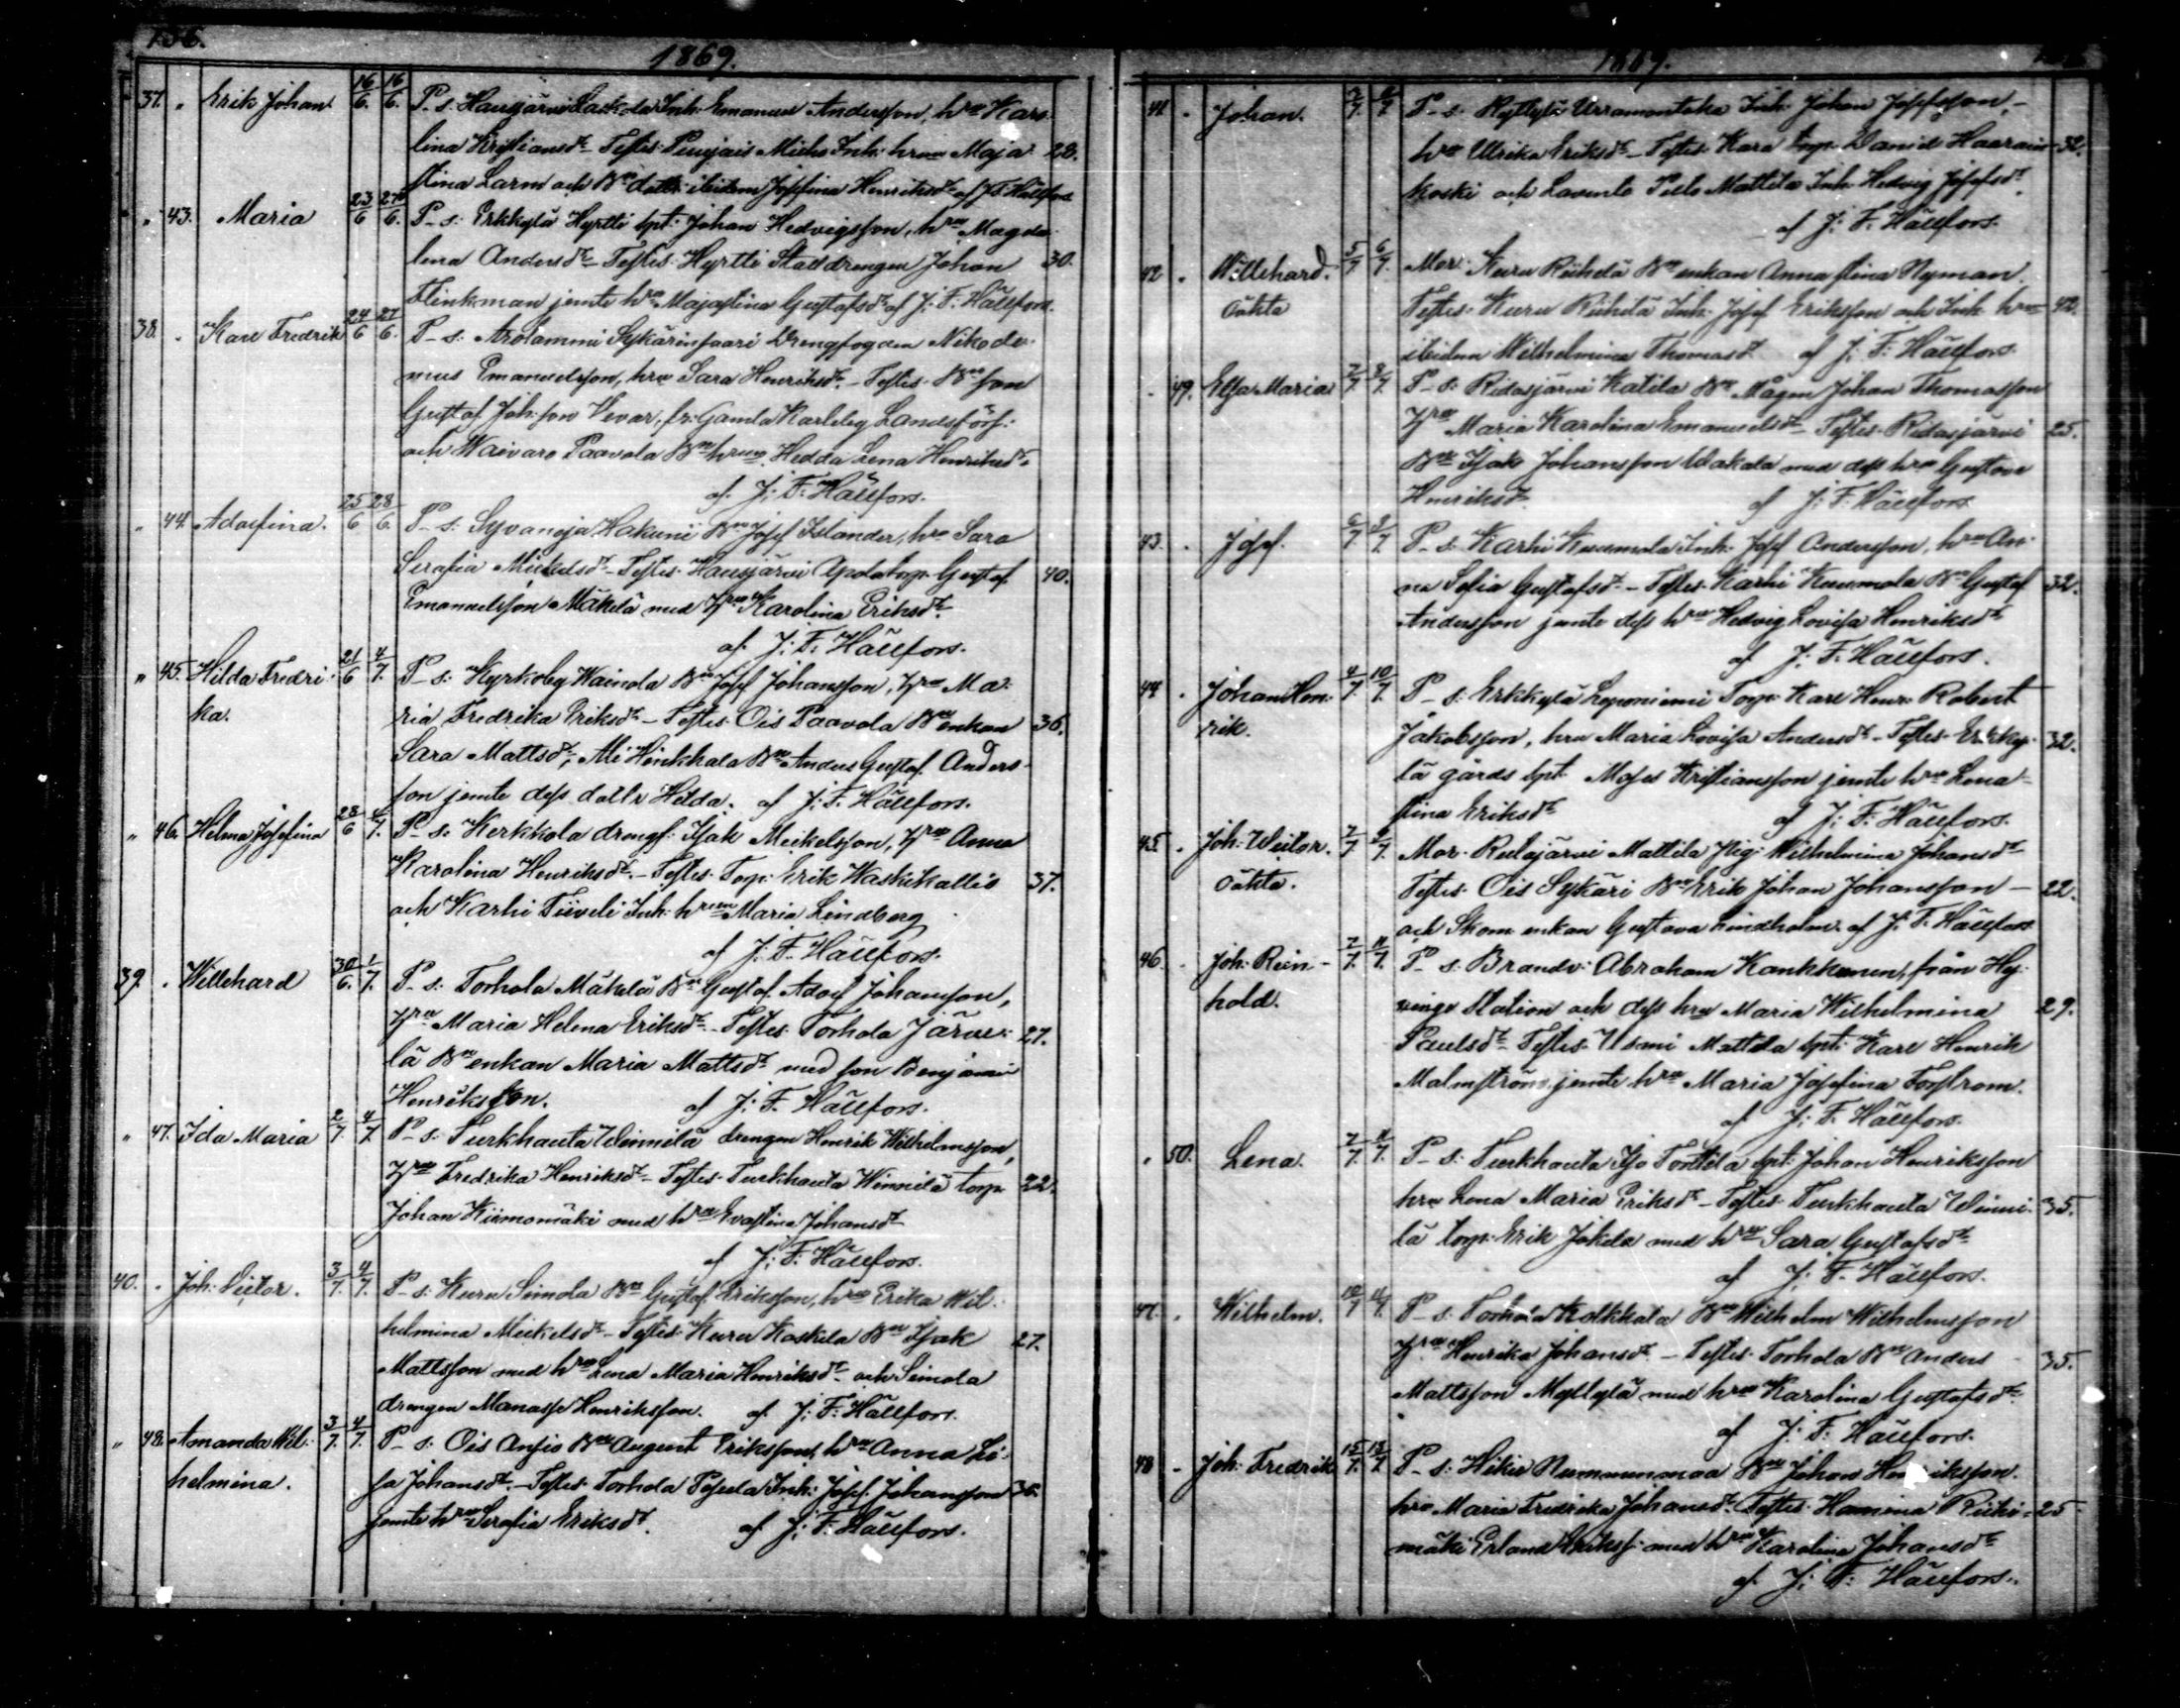 136.
1869.
37. " Erik Johan 16/6. 16/6. P. s. Hausjärvi Inh. Emanuel Andersson, hru Karo-
lina Kristiansdr - Testes: Inh. hrun Maja 28.
stina Larm och Josefina Henriksdr af J. F. Hällfors
" 43. Maria 23/6 27/6. P. s. Erkkylä Hyrtti spt: Johan Hedvigsson, hru Magda-
lena Andersdr - Testes: Hyrtti Stalldrengen Johan 30.
Flinkman jemte hru Majastina Gustafsdr af J. F. Hällfors.
38. " Karl Fredrik 24/6 27/6. P. s. Arolammi Sykärinsaari Drengfogden Nikode-
mus Emanuelsson, hru Sara Henriksdr. - Testes: Bde son
Gustaf Joh:son Vevar, fr. Gamla Karleby Landsförs:
och Waivaro Paavola Bde hrun Hedda Lena Henriksdr.
af J. F. Hällfors.
" 44. Adolfina. 25/6 28/6. P. s. Syvänoja Hakuni Bdn Josef Islander, hru Sara
Serafia Mickelsdr - Testes: Hausjärvi torp. Gustaf 40.
Emanuelsson Mäkelä med hru Karolina Eriksdr
af J. F. Hällfors.
" 45. Hilda Fredri- 21/6 4/7. P. s. Kyrkoby Wainola Bdn Josef Johansson, hru Ma-
ka. ria Fredrika Eriksdr - Testes: Ois Paavola Bde enkan 36.
Sara Mattsdr, Bdn Anders Gustaf Anders-
son jemte dess dottr Hilda. af J. F. Hällfors.
" 46. Helma Josefina 28/6 4/7. P. s. Kerkkola drengf. Isak Mickelsson, hru Anna
Karolina Henriksdr. - Testes: Torp. Erik Waskikallio 37.
och Karhi Tiiveli Inh. hrun Maria Lindberg
af J. F. Hällfors.
39. " Willehard 30/6. 1/7. P. s. Torhola Mäkelä Bdn Gustaf Adolf Johansson,
hru Maria Helena Eriksdr - Testes: Torhola Järve- 27.
lä Bde enkan Maria Mattsdr med son Benjamin
Henriksson. af J. F. Hällfors.
" 47. Ida Maria 2/7. 4/7. P. s. Turkhauta Winnilä drengen Henrik Wilhelmsson,
hru Fredrika Henriksdr - Testes: Turkhauta Winnilä torp. 22.
Johan Kiimomäki med hru Evastina Johansdr
af J. F. Hällfors.
40. " Joh. Victor. 3/7. 4/7. P. s. Kuru Simola Bdn Gustaf Eriksson, hru Erika Wil-
helmina Mickelsdr - Testes: Kuru Koskela Bdn Isak 27.
Mattsson med hru Lena Maria Henriksdr och Simola
drengen Manasse Henriksson. af J. F. Hällfors.
" 48. Amanda Wil- 3/7. 4/7. P. s. Ois Ansio Bdn August Eriksson, hru Anna Li-
helmina. sa Johansdr. - Testes: Torhola Inh: Josef Johansson 30.
jemte hru Serafia Eriksdr. af J. F. Hällfors.
1869.
41. " Johan. P. s. Inh. Johan Josefsson,
hru Ulrika Eriksdr - Testes: Kara torp. David Haarain- 32.
koski och Mattila Inh. Hedvig Josefsdr.
af J. F. Hällfors.
42. " Willehard. 5/7. 6/7. Mor. Kuru Riihelä Bde enkan Anna stina Nyman
oäkta Testes: Kuru Riihelä Inh. Josef Eriksson och Inh. hrun 42.
ibidem Wilhelmina Thomasdr af J. F. Hällfors.
" 49. Elsa Maria 7/7. 8/7. P. s. Ridasjärvi Katila Bde Mågen Johan Thomasson
hru Maria Karolina Emanuelsdr - Testes: Ridasjärvi 25.
Bdn Isak Johansson med dess hru Gustava
Henriksdr. af J. F. Hällfors
43. " Josef. P. s. Karhi Kuumola Inh. Josef Andersson, hru An-
na Sofia Gustafsdr. - Testes: Karhi Kuumola Bdn Gustaf 32.
Andersson jemte dess hru Hedvig Lovisa Henriksdr
af J. F. Hällfors.
44. " Johan Hen- 4/7. 10/7. P. s. Erkkylä Leponiemi Torp. Karl Henr. Robert
rik. Jakobsson, hru Maria Lovisa Andersdr - Testes: Erkky- 32.
lä gårds spt. Moses Kristiansson jemte hru Lena
stina Eriksdr af J. F. Hällfors.
45. " Joh. Victor. Mor. Mattila pig. Wilhelmina Johansdr
oäkta. Testes: Ois Sykäri Bdn Erik Johan Johansson - 22.
och Skom. enkan Gustava Lindholm af J. F. Hällfors
46. " Joh. Rein- 7/7. 11/7. P. s. Brandv. Abraham Kankkunen, från Hy-
hold. vinge Station och dess hru Maria Wilhelmina 29.
Paulsdr - Testes: Usmi Mattila spt: Karl Henrik
Malmström jemte hru Maria Josefina Forsström.
af J. F. Hällfors.
" 50. Lena. 7/7. 11/7. P. s. Turkhauta Iso Torttila spt. Johan Henriksson
hru Lena Maria Eriksdr - Testes: Turkhauta Winni- 35.
lä torp. Erik Jokela med hru Sara Gustafsdr
af J. F. Hällfors.
47. " Wilhelm. 10/7 11/7. P. s. Torhola Kolkkala Bdn Wilhelm Wilhelmsson
hru Henrika Johansdr. - Testes: Torhola Bdn Anders 35.
Mattsson Myllylä med hru Karolina Gustafsdr.
af J. F. Hällfors.
48 " Joh. Fredrik P. s. Hikiä Nummenmaa Bdn Johan Henriksson
hru Maria Fredrika Johansdr. Testes: Hamina Riihi- 25
mäki Erland Erikss. med hru Karolina Johansdr
af J. F. Hällfors.